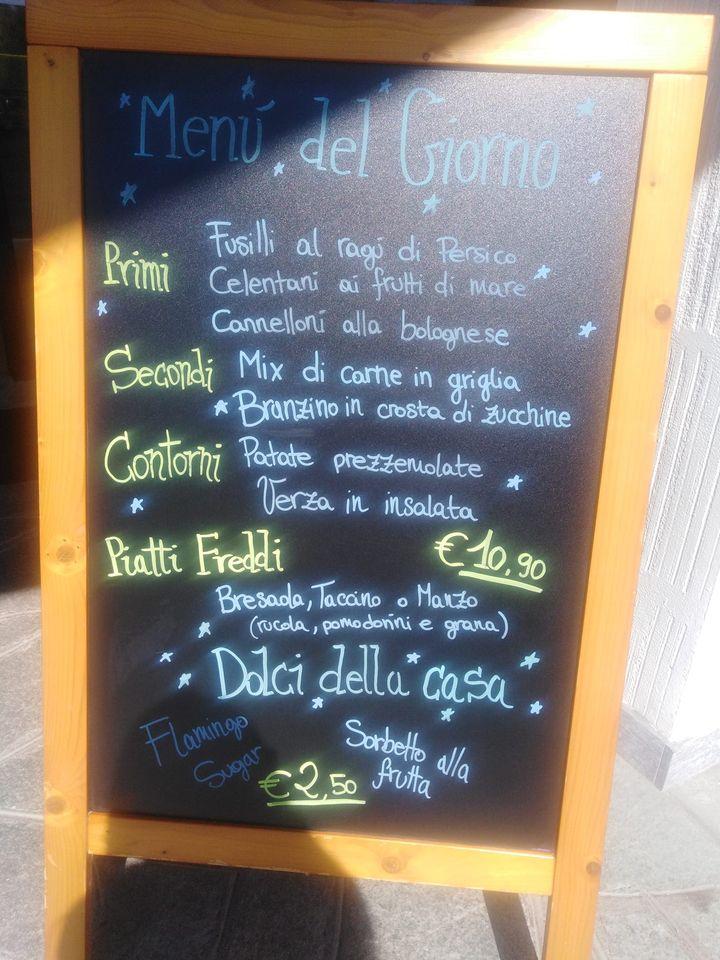 Menú del Giorno
Primi
Fusilli al ragú di Persico
Celentani ai frutti di mare
Cannelloni alla bolognese
Secondi
Mix di carne in griglia
Branzino in crosta di zucchine
Contorni
Patate prezzemolate
Verza in insalata
Piatti Freddi
€10,90
Bresaola, Taccino o Manzo
(rucola, pomodorini e grana)
Dolci della casa
Flamingo
Sugar
Sorbetto alla
frutta
€2,50